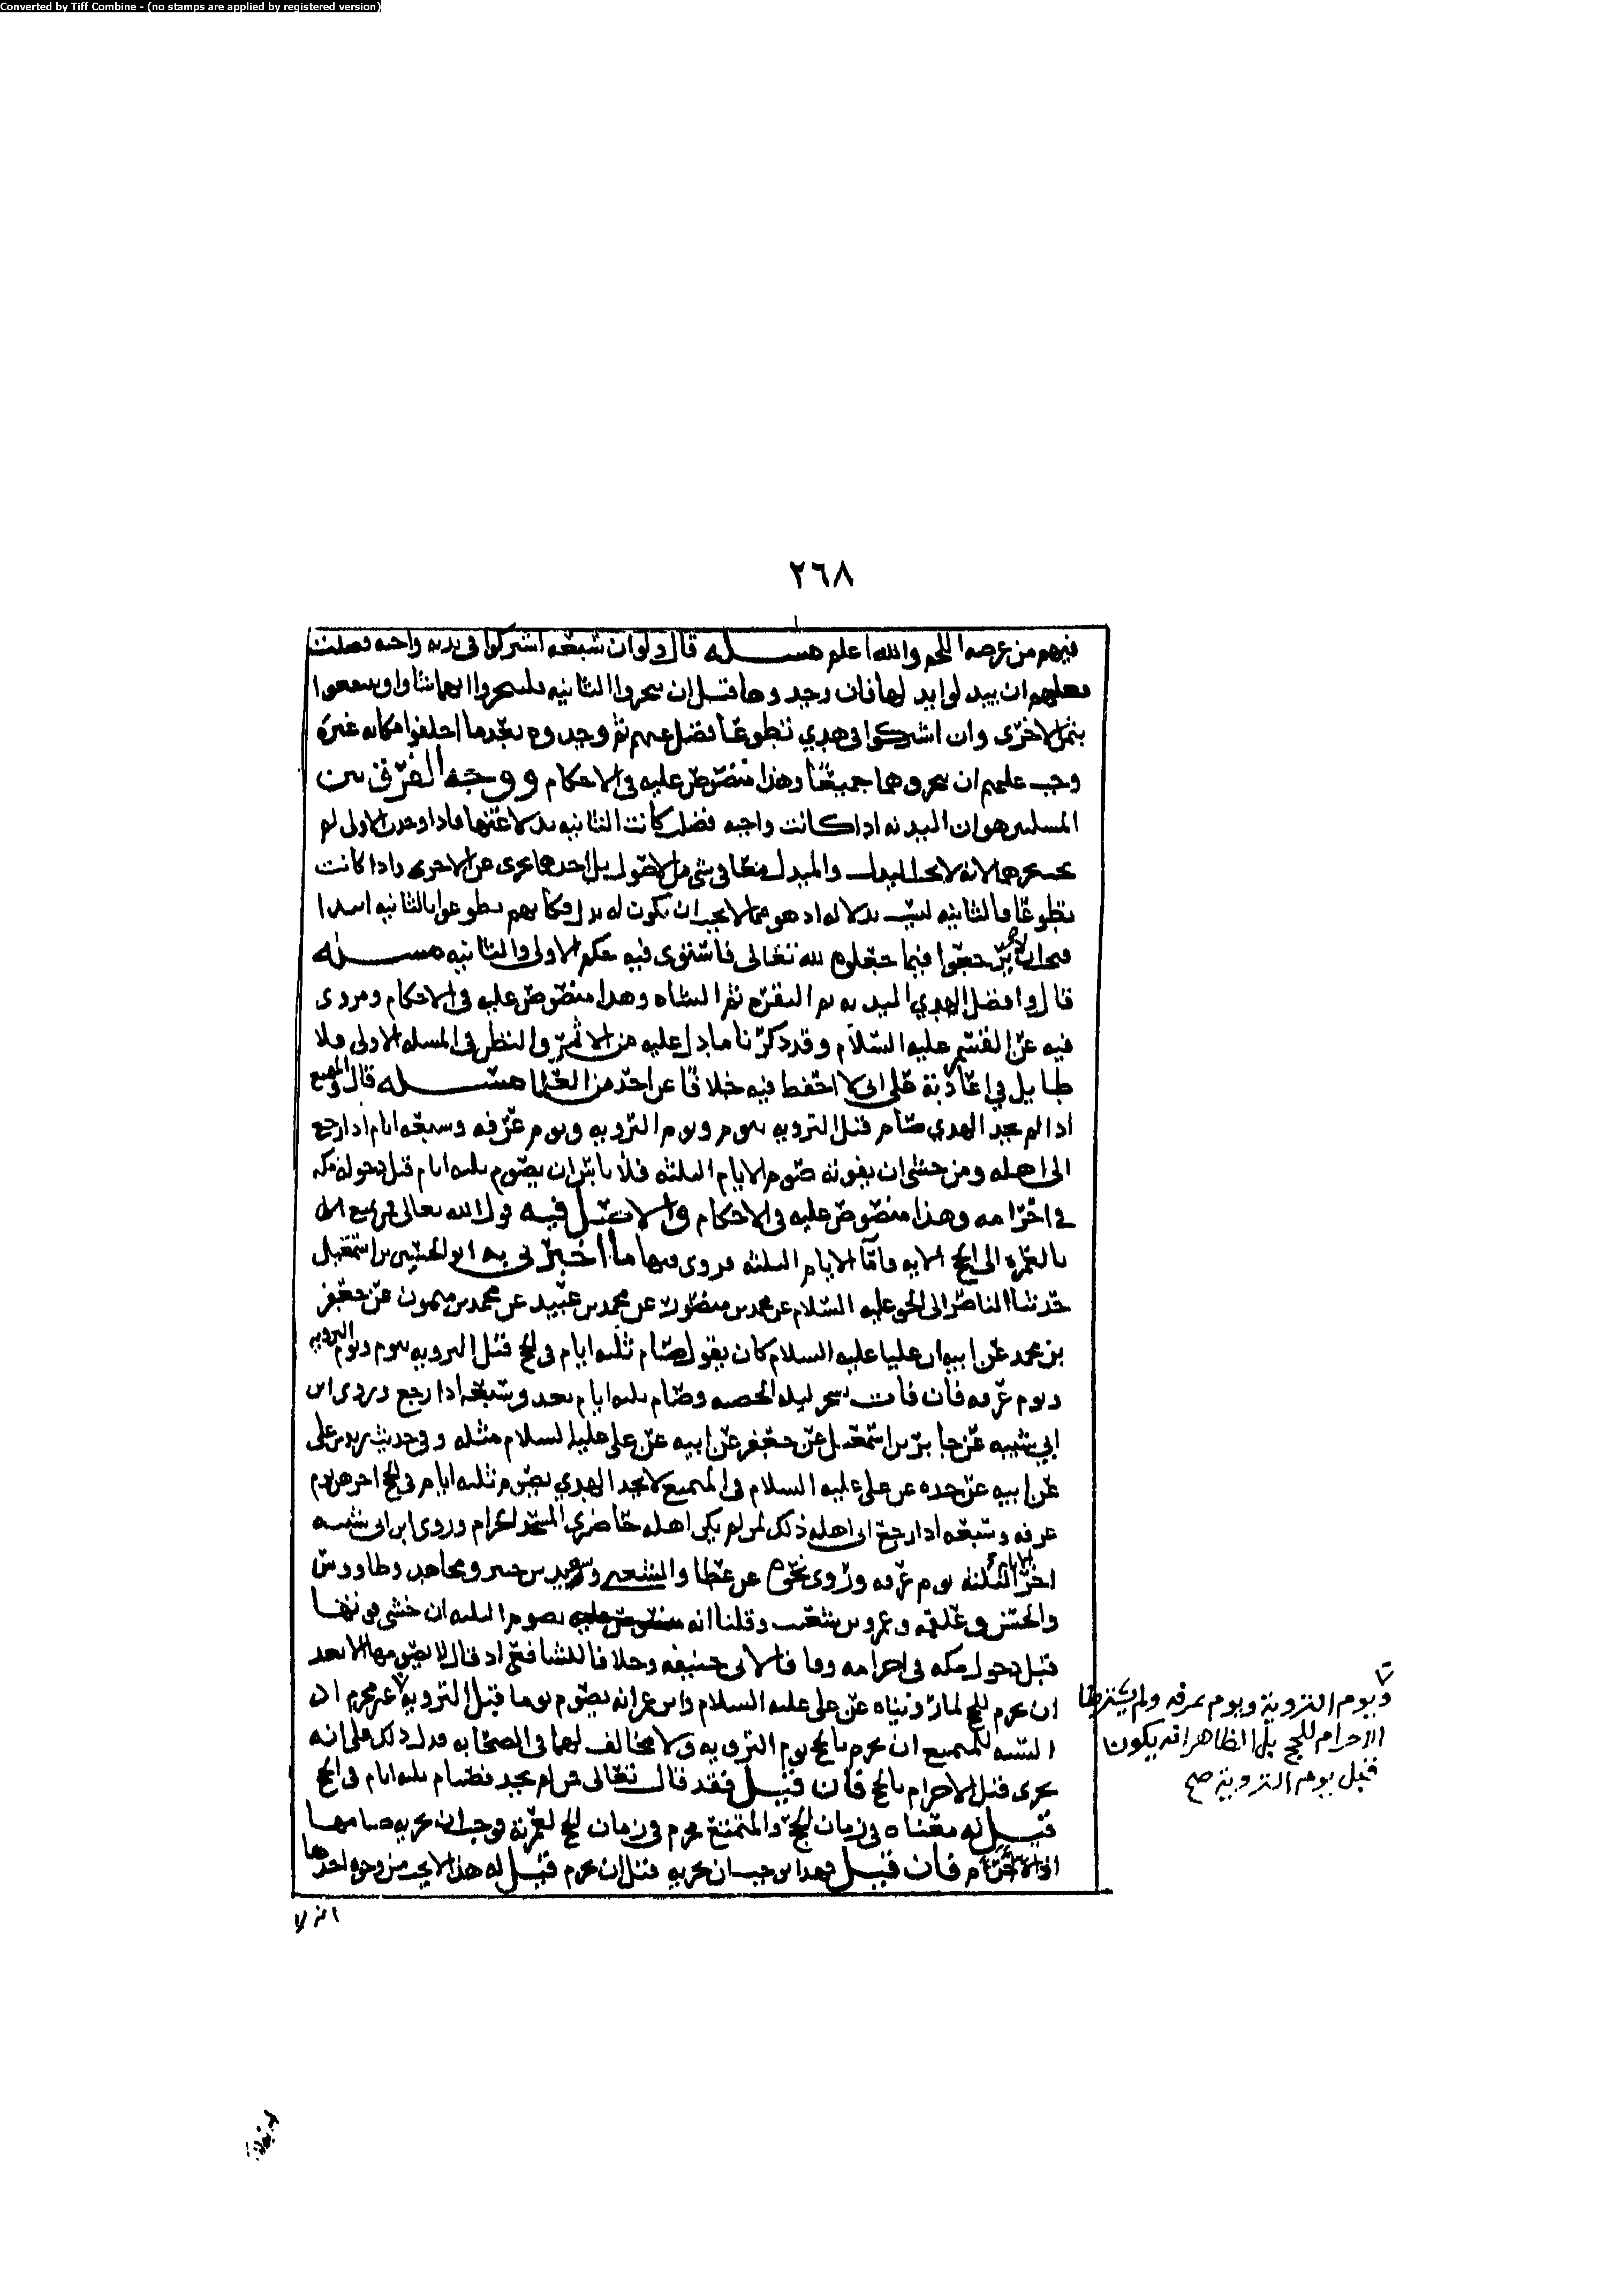 Converted by Tiff Combine - (no stamps are applied by registered version)
٢٦٨
فيهم من عرضه اللحم والله اعلم مسـله قال ولو ان سبعه اشتركوا في بدنه واجبه فضلت
فعليهم ان يبدلوا بدلها فان وجدوها قبل ان ينحروا الثانيه فلينحروا ايهما شاوا وينتفعوا
بثمن الاخرى وان اشتركوا في هدي تطوعا فضل عنهم ثم وجدوه بعد ما اخلفوا مكانه غيره
وجب عليهم ان ينحروهما جميعًا وهذا منصوص عليه في الاحكام ووجه الفرق بين
المسلتين هو ان البدنه اذا كانت واجبه فضلت كانت الثانيه بدلا عنها فاذا وجدت الاولى لم
لانه لا البدل والمبدل معا في شي من الاصول بل احدهما يجزي عن الاخرى واذا كانت
تطوعًا فالثانيه ليست بدلا له اذ هو مما لا يجب ان يكون له بدل فكانهم تطوعوا بالثانيه ابتدا
فيما جعلوه لله تعالى فاستوى فيه حكم الاولى والثانيه مسـله
قال وافضل الهدي البدنه ثم البقره ثم الشاه وهذا منصوص عليه في الاحكام ومروى
فيه عن القسم عليه السلام وقد ذكرنا ما دل عليه من الاثر والنظر في المسله الاولى فلا
طايل في اعادته على اني لا احفظ فيه خلافًا عن احد من العلما مسـله قال والمتمتع
اذا لم يجد الهدي صام قبل الترويه بيوم ويوم الترويه ويوم عرفه وسبعه ايام اذا رجع
الى اهله ومن خشى ان يفوته صوم الايام الثلثه فلا باس ان يصوم ثلثه ايام قبل دخوله مكه
في احرامه وهذا منصوص عليه في الاحكام والاصل فيه قول الله تعالى فمن تمتع
بالعمره الى الحج الايه فاما الايام الثلثه فروى فيها ما اخبرني به ابو الحسين بن اسمعيل
حدثنا الناصر الى الحق عليه السلام عن محمد بن منصور عن محمد بن عبيد عن محمد بن ميمون عن جعفر
بن محمد عن ابيه ان عليا عليه السلام كان يقول صام ثلثه ايام في الحج قبل الترويه بيوم ويوم الترويه
ويوم عرفه فان فاتت تسحر ليله الحصبه وصام ثلثه ايام بعد وسبعه اذا رجع وروى ابن
ابي شيبه عن جابر بن اسمعيل عن جعفر عن ابيه عن علي عليه السلام مثله وفي حديث زيد بن علي
عن ابيه عن جده عن علي عليه السلام في المتمتع لا يجد الهدي يصوم ثلثه ايام في الحج اخرهن يوم
عرفه وسبعه اذا رجع الى اهله ذلك لمن لم يكن اهله حاضري المسجد الحرام وروى ابن ابي شيبه
اخر الايام الثلثه يوم عرفه وروى نحوه عن عطا والشعبي وسعيد بن جبير ومجاهد وطاووس
والحسن وعلقمه وعمرو بن شعيب وقلنا انه يصوم الثلثه ان خشى فوتها
قبل دخول مكه في احرامه وفاقا لابي حنيفه وخلافا للشافعي اذ قال لا يصومها الا بعد
ان يحرم للحج لما رويناه عن علي عليه السلام وابن عمر انه يصوم يوما قبل الترويه غير محرم اذ
السنه للمتمتع ان يحرم بالحج يوم الترويه ولا مخالف لهما في الصحابه فدل ذلك على انه
يجزى قبل الاحرام بالحج فان قيل فقد قال تعالى فمن لم يجد فصيام ثلثه ايام في الحج
قيل له معناه في زمان الحج والمتمتع محرم في زمان الحج لعمرته فوجب ان يجزيه صيامها
الاحرام فان قيل ان يجزيه قبل ان يحرم قيل له هذا لا يجب من وجوه احدها
ويوم التروية ويوم عرفه ولم يشترط
الاحرام للحج بل الظاهر انه يكون
قبل يوم التروية صح